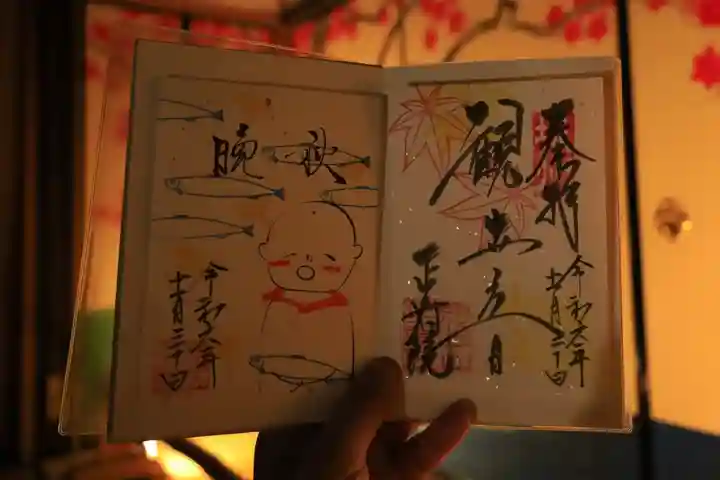 奉拝
令和六年
十一月二十日
観
正寿院
晩秋
令和六年
十一月二十日